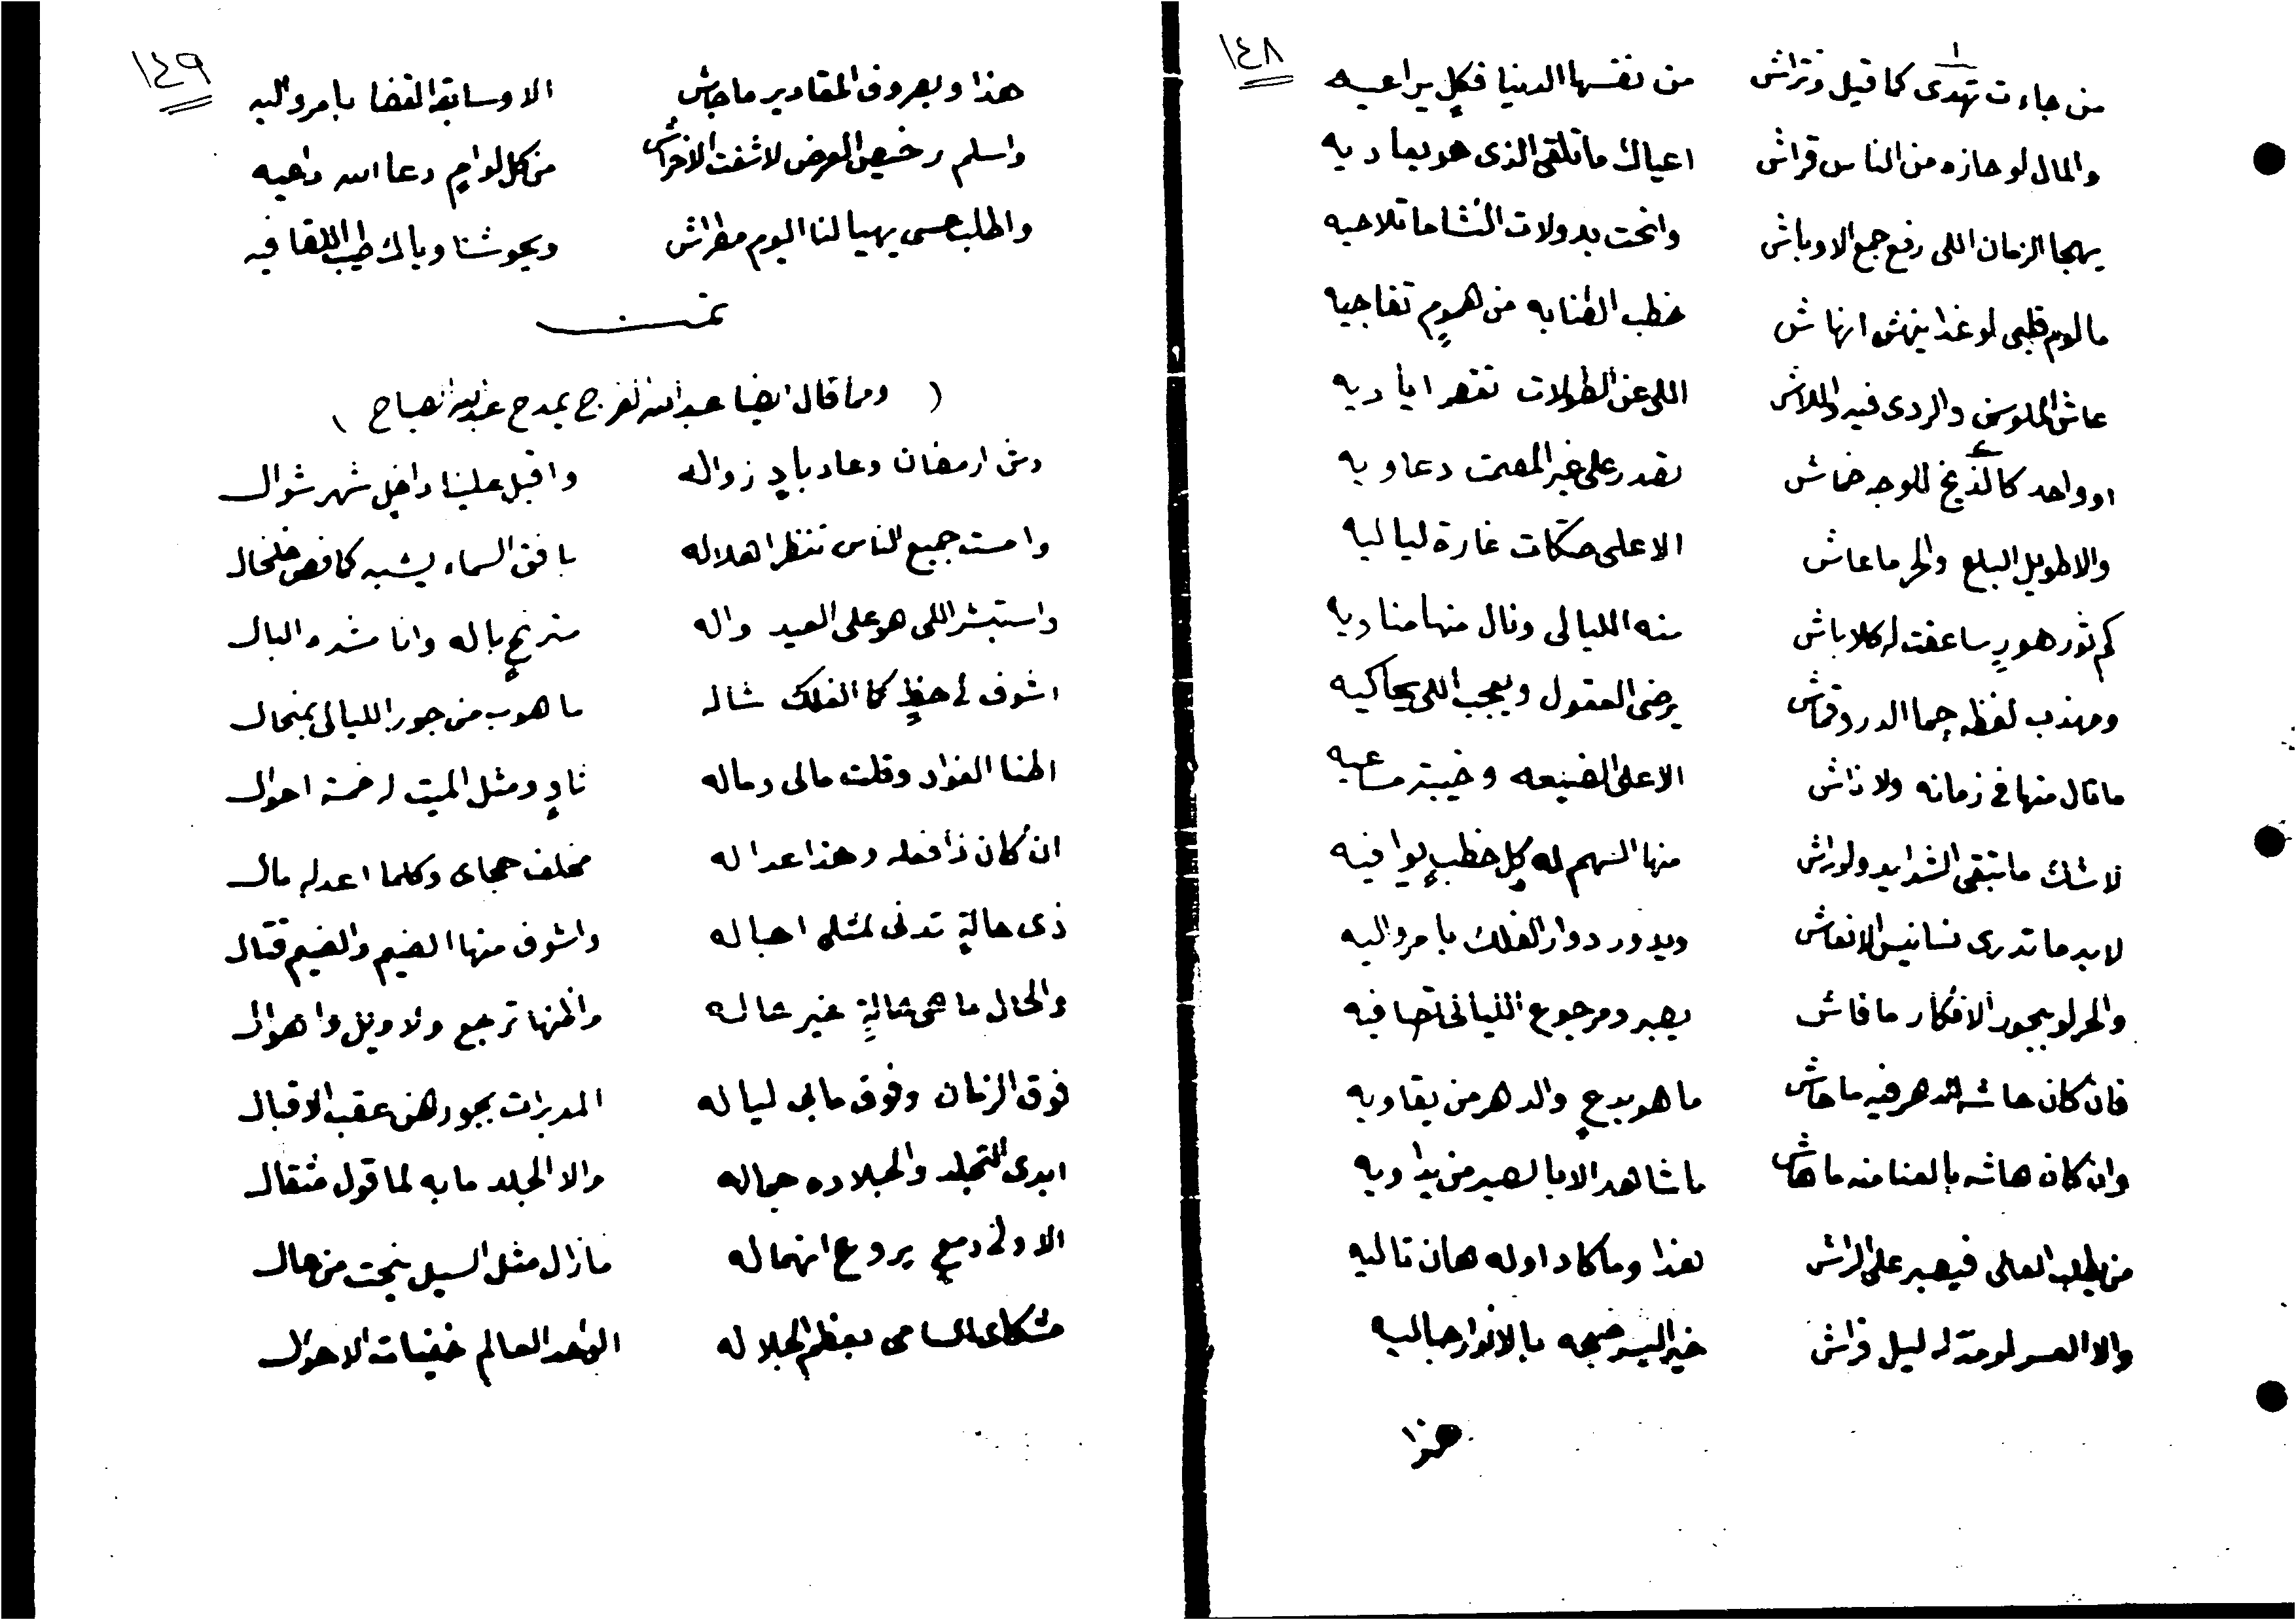 ١٤٨
من جاءت تهدى كما قيل وتراش من نفسها الدنيا فكلٍ يراعيه
والمال لو حازه من الناس قراش اعياك ما تلقى الذى هو يعاديه
يهجا الزمان اللى رفع جمع الاوباش وانحت بدولات النشاما تلاحيه
ما لوم قلبى لو غدا ينهش انهاش خطب الطنا به من همومٍ تفاجيه
عاش الملوسن والردى فيه والملاش اللى عن الطولات تقصر اياديه
او واحد كالذيخ للوجه خماش يقدر على غير المصمت دعاويه
والا طويل البلع والحر ما عاش الا على حكات غارة لياليه
كم ثور هورٍ ساعفت له كلاباش منه الليالى ونال منها مناديه
ومهذب لفظه جما الدر وقماش يرضى العقول ويعجب اللى يحاكيه
ما نال منها فى زمانه ولا ذاش الا على الضيعه وخيبة مساعيه
لا شك ما تبقى الشدايد ولو راش منها السهم له كل خطبٍ يوافيه
لا بد ما تدرى نسانيس الانعاش ويدور دوار الفلك بامر واليه
والحر لو بحور الافكار ما فاش يصبر ومرجوع الليالى تصافيه
فان كان حاشه الدهر فيه ما حاش ما هو بدعٍ والدهر من يقاويه
وان كان هاشه بالعنا منه ما هاش ما شاهد الا بالصبر من يداويه
من يطلب العلى فيصبر على الراش لغذا وما كاد اوله هان تاليه
والا العسر لو مد له ليل فراش خير اليسر صبحه بالانوار جاليه
هذا
١٤٩
هذا وبصروف المقادير ما جاش الا وسابق القضا بامر واليه
واسلم رخيص العرض لا شفت الاخراش من كل لوامٍ دعا الله داعيه
واطلب عسى يهيا لنا اليوم مطراش ويحوشنا وياك طيب اللقا فيه
تمت
( ومما قال ايضا عبدالله الفرج يمدح عبدالله الصباح )
وش ارمضان وعاد بادٍ زواله واقبل علينا داخل شهر شوال
وامست جميع الناس تنظر اهلاله بافق السماء يشبه كما فص خلخال
واستبشر اللى هو على العيد واله مترنحٍ باله وانا مشده البال
اشوف لى حظٍ كما الفلك شاله ما هوب من جور الليالى بمنحال
اطنا الفؤاد وقلت مالى وماله ثاوٍ ومثل الميت له خمسة احوال
ان كان ذا فعله وهذا عداله مخلف حجاى وكلما اعدله مال
ذى حالةٍ تدنى لمثله احباله واشوف منها الضيم والضيم قتال
والحال ما هى حالةٍ غير حاله واظنها ترجع ولاويل واهوال
فوق الزمان وفوق مابى لياله المدبرات بجورهن عقب الاقبال
ابدى التجلد والجلاده جماله والا الجلد مابه لما قول مثقال
الا ولى دمعٍ يروع انهماله مازال مثل السيل ينحت من هال
مشكاى للسامى بعظم الجلاله الواحد العالم خفيات الاحوال